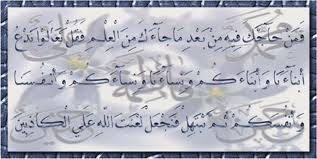 فَمَنْ حَاجَّكَ فِيهِ مِنْ بَعْدِ مَا جَاءَكَ مِنَ الْعِلْمِ فَقُلْ تَعَالَوْا نَدْعُ
أَبْنَاءَنَا وَأَبْنَاءَكُمْ وَنِسَاءَنَا وَنِسَاءَكُمْ وَأَنْفُسَنَا
وَأَنْفُسَكُمْ ثُمَّ نَبْتَهِلْ فَنَجْعَلْ لَعْنَتَ اللَّهِ عَلَى الْكَاذِبِينَ